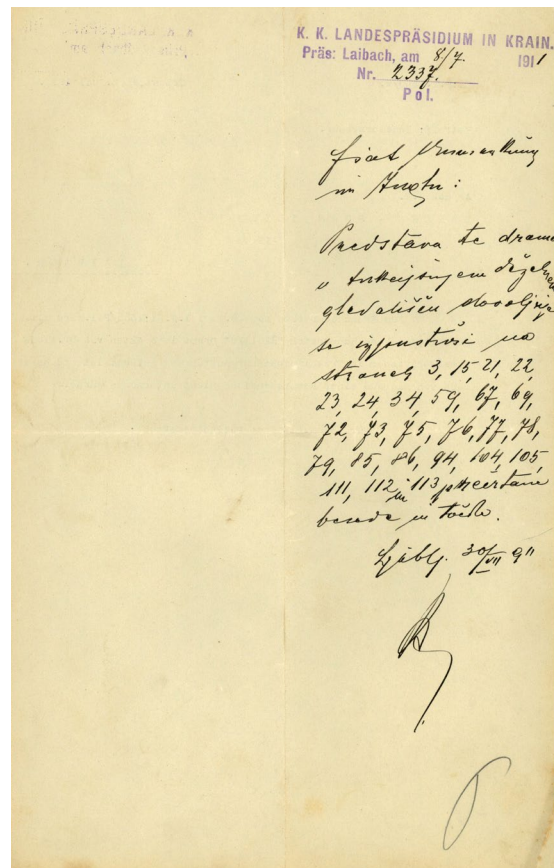 K. K. LANDESPRÄSIDIUM IN KRAIN.
Präs: Laibach, am 8/7. 1911
Nr. 2337.
Pol.
fiat
im :
Predstava te drame
v tukajšnjem deželnem
gledališču dovoljuje
se izjemši na
straneh 3, 15, 21, 22,
23, 24, 34, 59, 67, 69,
72, 73, 75, 76, 77, 78,
79, 85, 86, 94, 104, 105,
111, 112 in 113 prečrtane
besede in točke.
Ljublj. 30/VII 911